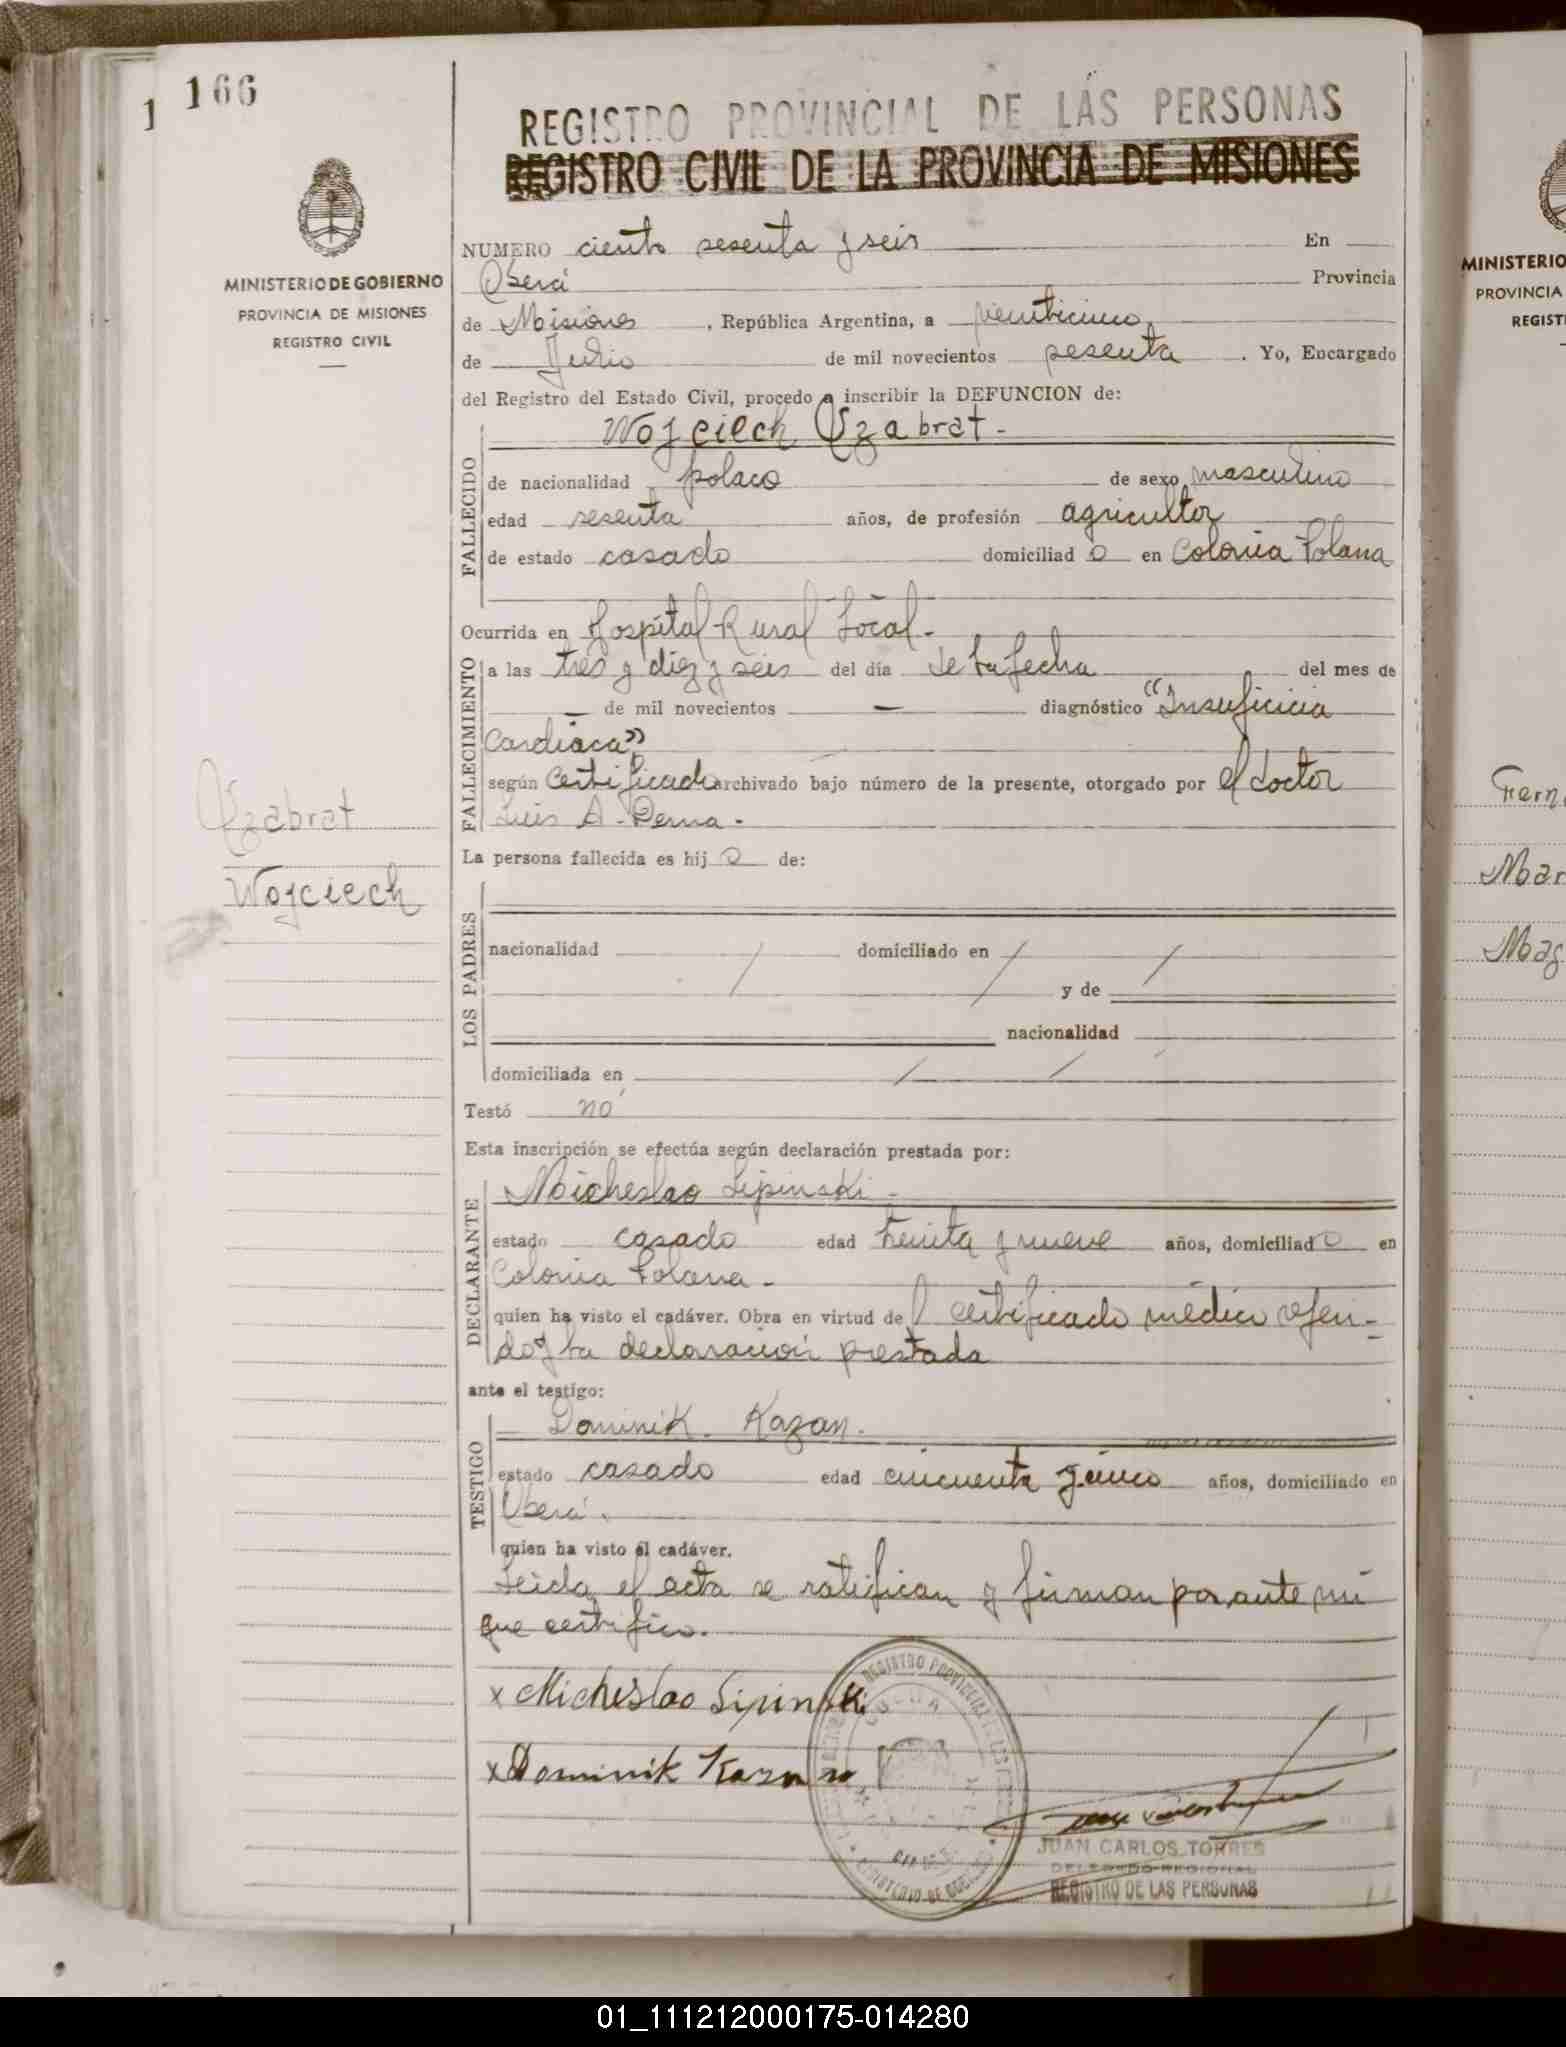 166
1
REGISTRO PROVINCIAL DE LAS PERSONAS
REGISTRO CIVIL DE LA PROVINCIA DE MISIONES
MINISTERIO DE GOBIERNO
PROVINCIA DE MISIONES
REGISTRO CIVIL
NUMERO ciento sesenta y seis En
Oberá Provincia
de Misiones, República Argentina, a veinticinco
de Julio de mil novecientos sesenta. Yo, Encargado
del Registro del Estado Civil, procedo a inscribir la DEFUNCION de:
Wojciech Ozabrat-
FALLECIDO
de nacionalidad polaco de sexo masculino
edad sesenta años, de profesión agricultor
de estado casado domiciliado en Colonia Polana
Ocurrida en Hospital Rural Local-
FALLECIMIENTO
a las tres y diez y seis del día de la fecha del mes de
— de mil novecientos — diagnóstico "Insuficicia
Cardíaca"
según Certificado archivado bajo número de la presente, otorgado por el doctor
Luis A.
La persona fallecida es hijo de:
LOS PADRES
nacionalidad domiciliado en
y de
nacionalidad
domiciliada en
Testó no
Esta inscripción se efectúa según declaración prestada por:
DECLARANTE
Micheslao Lipinski-
estado casado edad treinta y nueve años, domiciliado en
Colonia Polana-
quien ha visto el cadáver. Obra en virtud del certificado médico referi-
do y la declaración prestada
ante el testigo:
TESTIGO
Dominik Kazan.
estado casado edad cincuenta y cinco años, domiciliado en
Oberá.
quien ha visto el cadáver.
Leida el acta se ratifican y firman por ante mi
que certifico.
x Micheslao Lipinski
x Dominik Kazan
JUAN CARLOS TORRES
DELEGADO REGIONAL
REGISTRO DE LAS PERSONAS
Ozabrat
Wojciech
MINISTERIO
PROVINCIA
REGIST
Fern
Mar
Mag
01_111212000175-014280